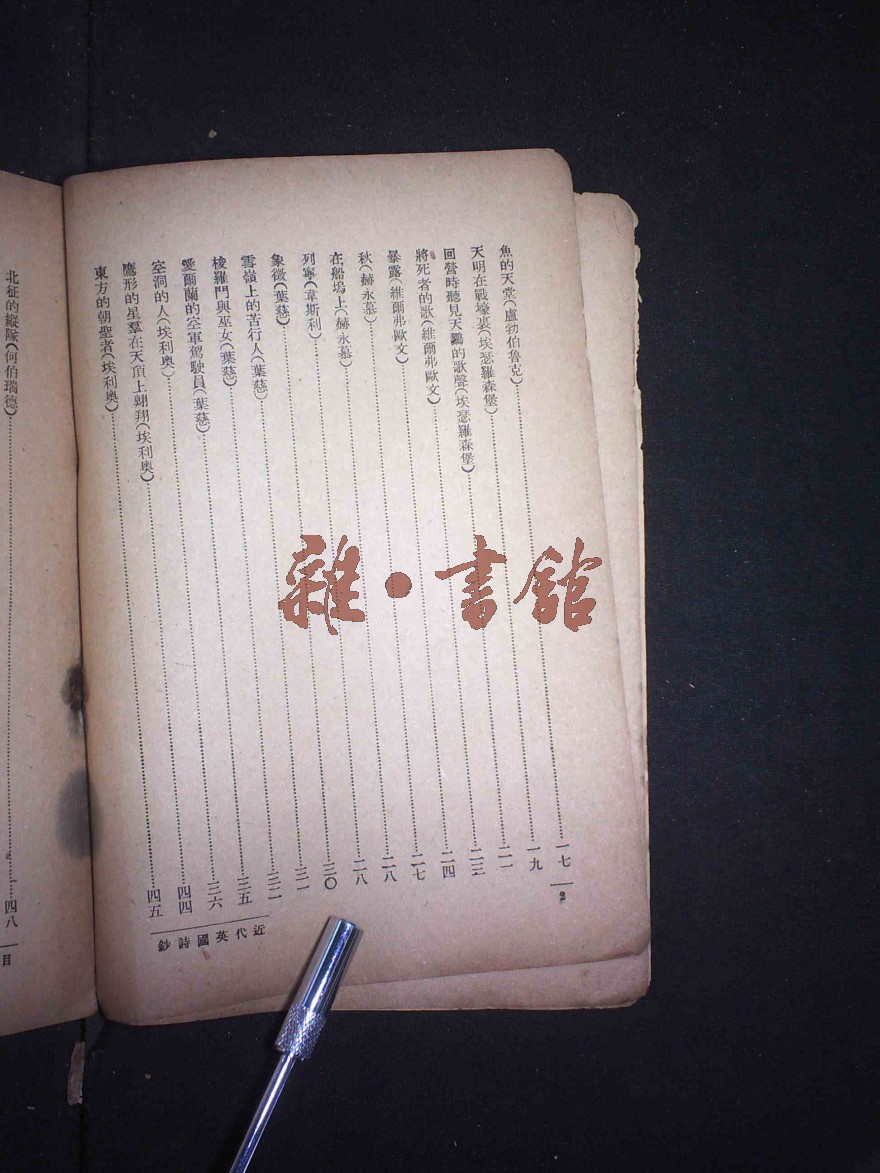 2
魚的天堂(盧勃伯魯克)……一七
天明在戰壕裏(埃瑟羅森堡)……一九
回營時聽見天鷚的歌聲(埃瑟羅森堡)……二一
將死者的歌(維爾弗歐文)……二三
暴露(維爾弗歐文)……二四
秋(赫永慕)……二七
在船塢上(赫永慕)……二八
列寧(韋斯利)……二八
象徵(葉慈)……三〇
雪嶺上的苦行人(葉慈)……三一
梭羅門與巫女(葉慈)……三二
愛爾蘭的空軍駕駛員(葉慈)……三五
空洞的人(埃利奧)……三六
鷹形的星羣在天頂上翱翔(埃利奧)……四四
東方的朝聖者(埃利奧)……四五
近代英國詩鈔
北征的縱隊(何伯瑞德)……四八
目
雜·書館